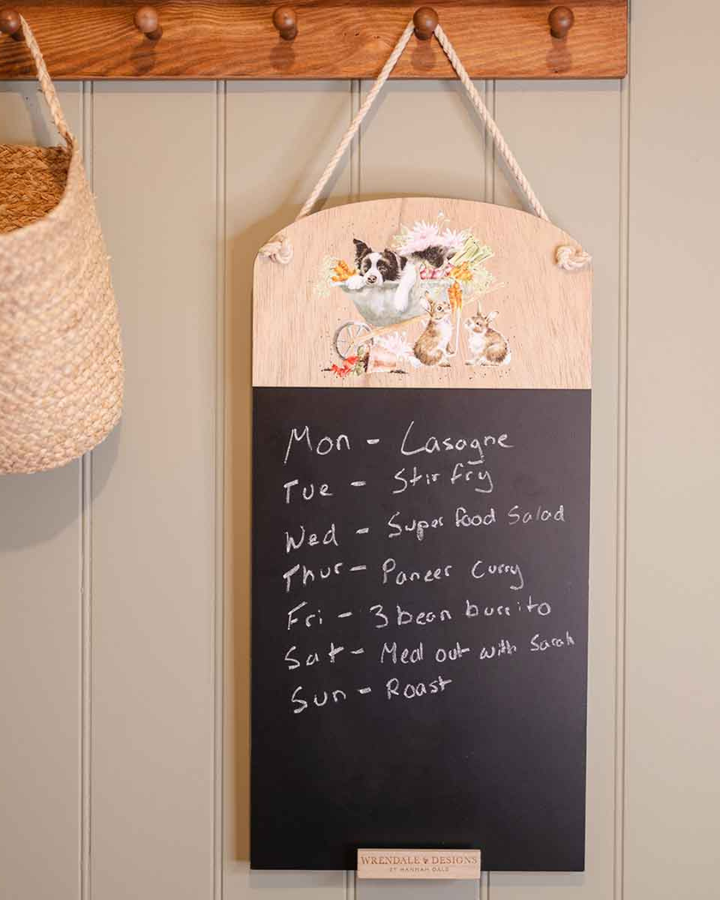 Mon - Lasagne
Tue - Stir fry
Wed - Super food Salad
Thur - Paneer Curry
Fri - 3 bean burrito
Sat - Meal out with Sarah
Sun - Roast
WRENDALE DESIGNS
BY HANNAH DALE